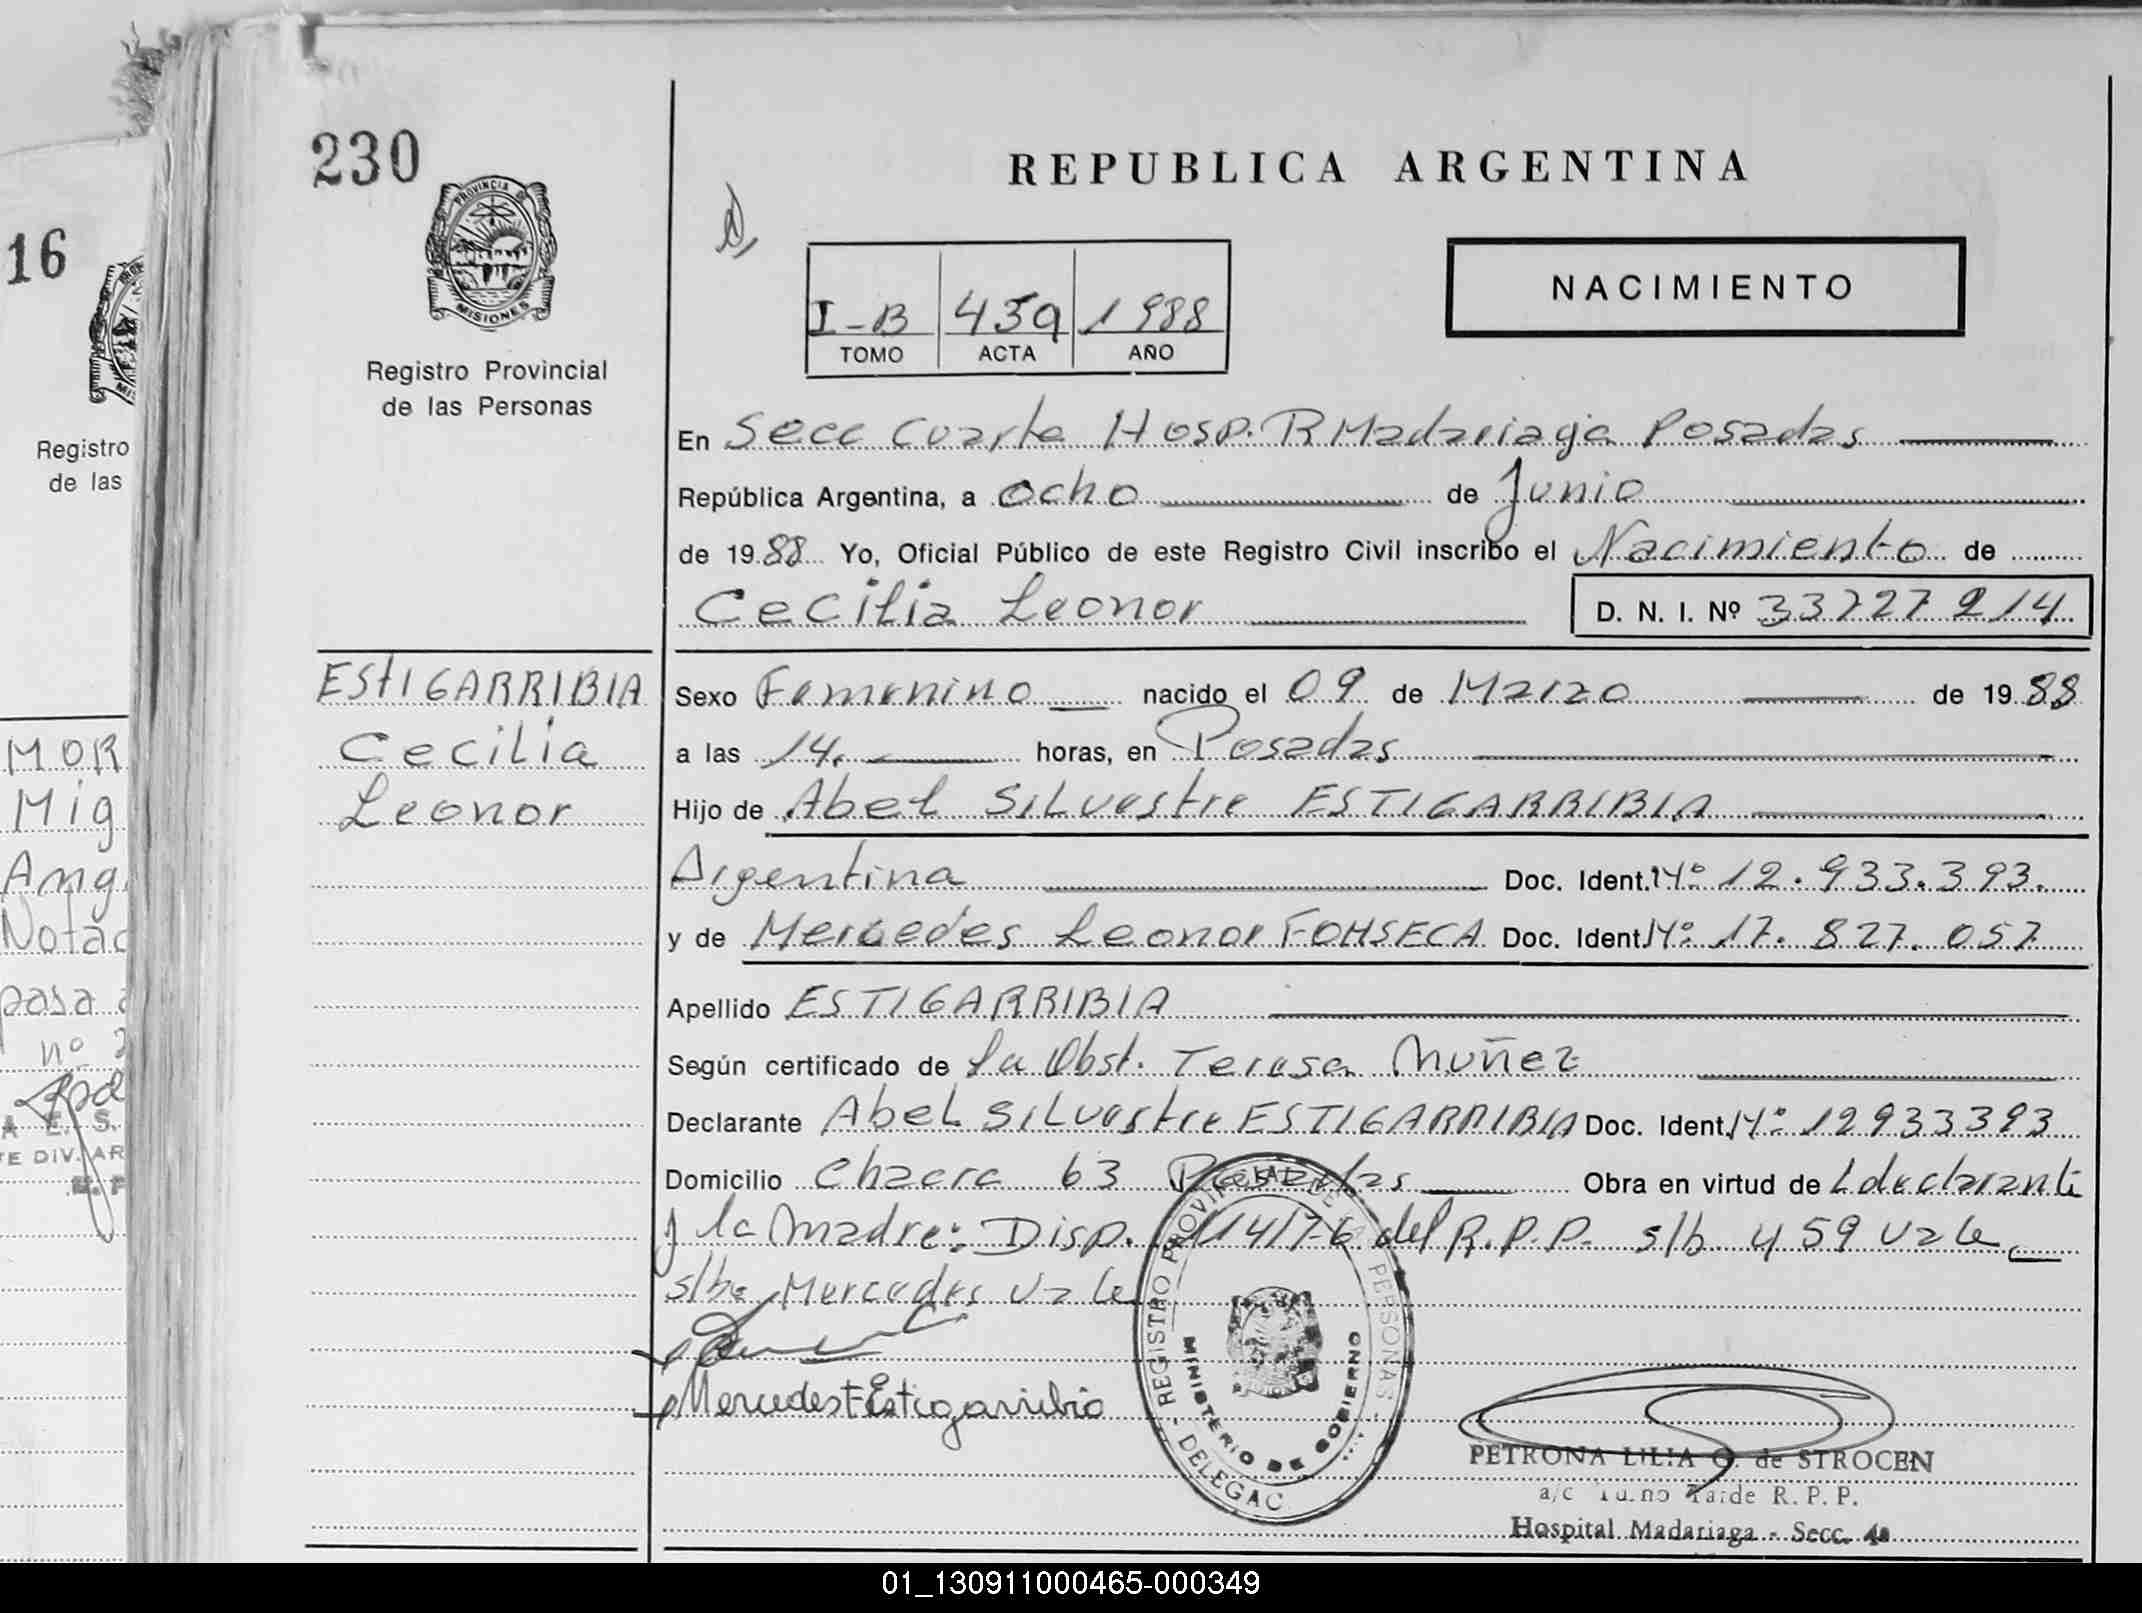 230
PROVINCIA D
MISIONES
Registro Provincial
de las Personas
ESTIGARRIBIA
Cecilia
Leonor
REPUBLICA ARGENTINA
NACIMIENTO
I-B 459 1988
TOMO ACTA AÑO
En Secc Cuarta Hosp. R Madariaga Posadas
República Argentina, a ocho de Junio
de 1988 Yo, Oficial Público de este Registro Civil inscribo el Nacimiento de
Cecilia Leonor D. N. I. Nº 33727214
Sexo Femenino nacido el 09 de Marzo de 1988
a las 14. horas, en Posadas
Hijo de Abel Silvestre ESTIGARRIBIA
Argentina Doc. Ident. Nº 12.933.393.
y de Mercedes Leonor FONSECA Doc. Ident. Nº 17.827.057
Apellido ESTIGARRIBIA
Según certificado de la Obst. Teresa Nuñez
Declarante Abel Silvestre ESTIGARRIBIA Doc. Ident. Nº 12933393
Domicilio Chacra 63 Posadas Obra en virtud de L declarante
y la madre: Disp. 114/76 del R.P.P. s/b 459 vale
s/b: Mercedes vale
Mercedes F Estigarribia
REGISTRO PROVINCIAL DE LA PERSONAS - DELEGAC
MINISTERIO DE GOBIERNO
PETRONA LILIA O. de STROCEN
a/c Turno Tarde R. P. P.
Hospital Madariaga - Secc. 4a
16
Registro
de las
MOR
Mig
Ang
Notac
pasa a
nº 2
A E. S.
TE DIV. AR
01_130911000465-000349